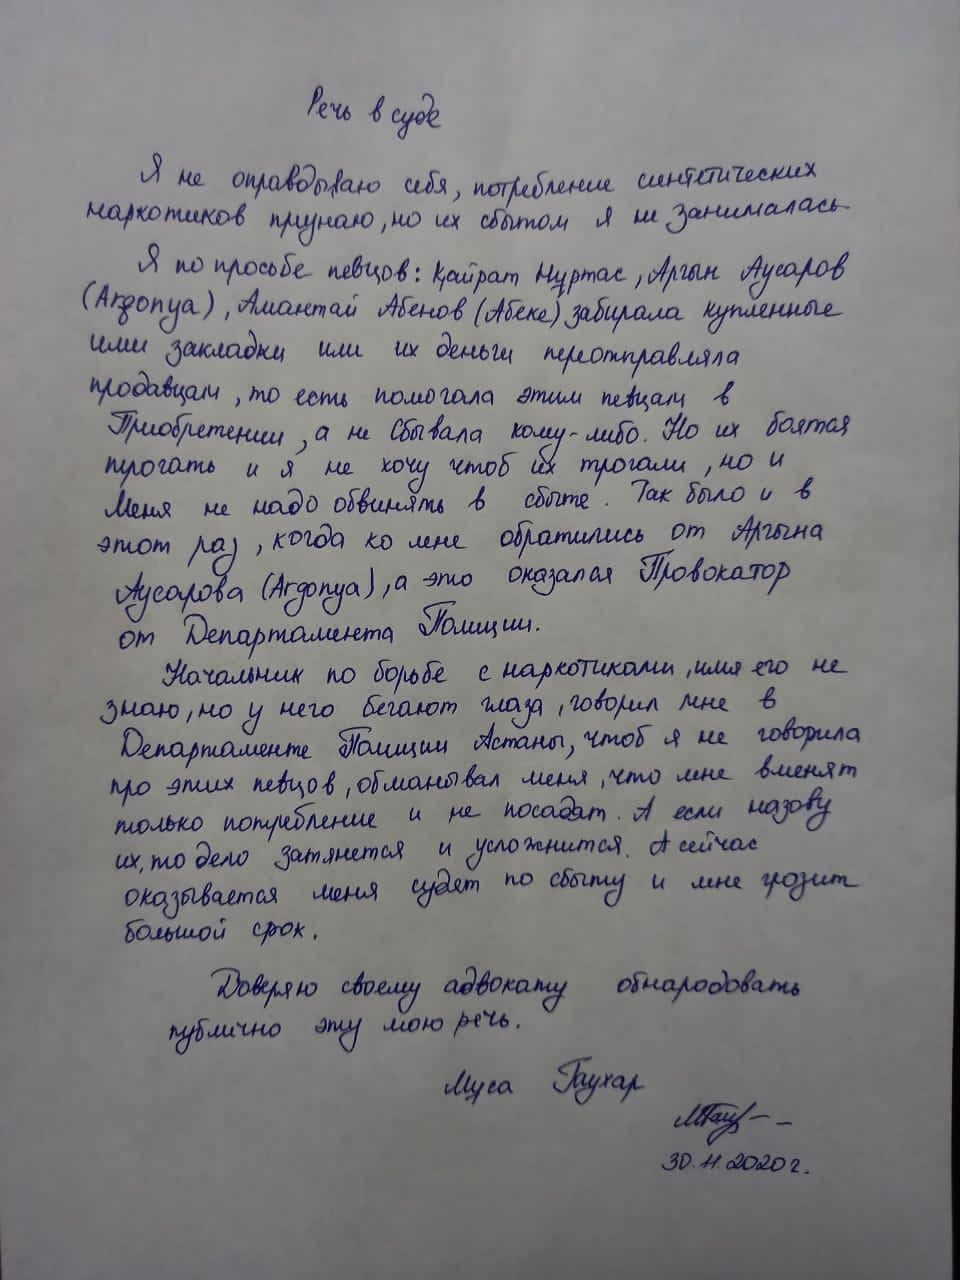 Речь в суде
Я не оправдываю себя, потребление синтетических
наркотиков признаю, но их сбытом я не занималась
Я по просьбе певцов: Қайрат Нұртас, Аргын Аусаров
(Argonya), Амантай Абенов (Абеке) забирала купленные
ими закладки или их деньги переотправляла
продавцам, то есть помогала этим певцам в
Приобретении, а не Сбывала кому-либо. Но их боятся
трогать и я не хочу чтоб их трогали, но и
Меня не надо обвинять в сбыте. Так было и в
этот раз, когда ко мне обратились от Аргына
Аусарова (Argonya), а это оказался Провокатор
от Департамента Полиции.
Начальник по борьбе с наркотиками, имя его не
знаю, но у него бегают глаза, говорил мне в
Департаменте Полиции Астаны, чтоб я не говорила
про этих певцов, обманывал меня, что мне вменят
только потребление и не посадят. А если назову
их, то дело затянется и усложнится. А сейчас
оказывается меня судят по сбыту и мне грозит
большой срок.
Доверяю своему адвокату обнародовать
публично эту мою речь.
Муса Гаухар
30.11.2020г.